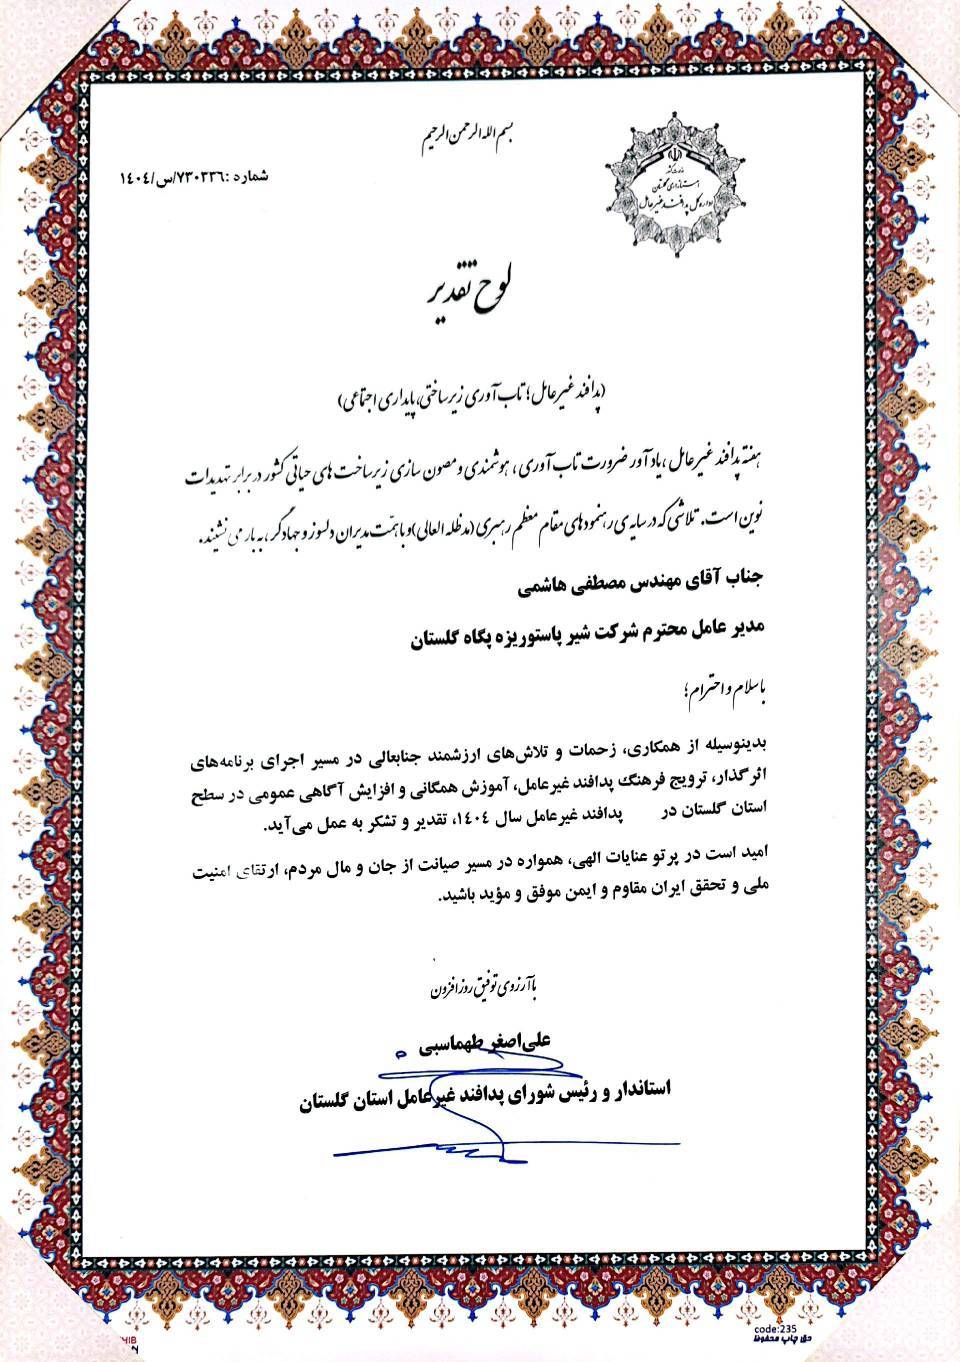 بسم الله الرحمن الرحیم
شماره :۷۳۰۳۳۶/س/۱۴۰۴
وزارت کشور
استانداری گلستان
اداره کل پدافند غیرعامل
لوح تقدیر
(پدافند غیرعامل؛ تاب‌آوری زیرساختی، پایداری اجتماعی)
هفته پدافند غیرعامل، یادآور ضرورت تاب‌آوری، هوشمندی و مصون سازی زیرساخت‌های حیاتی کشور در برابر تهدیدات
نوین است. تلاشی که در سایه‌ی رهنمودهای مقام معظم رهبری (مدظله العالی) و با همّت مدیران دلسوز و جهادگر، به بار می نشیند.
جناب آقای مهندس مصطفی هاشمی
مدیر عامل محترم شرکت شیر پاستوریزه پگاه گلستان
با سلام و احترام؛
بدینوسیله از همکاری، زحمات و تلاش‌های ارزشمند جنابعالی در مسیر اجرای برنامه‌های
اثرگذار، ترویج فرهنگ پدافند غیرعامل، آموزش همگانی و افزایش آگاهی عمومی در سطح
استان گلستان در پدافند غیرعامل سال ۱۴۰۴، تقدیر و تشکر به عمل می‌آید.
امید است در پرتو عنایات الهی، همواره در مسیر صیانت از جان و مال مردم، ارتقای امنیت
ملی و تحقق ایران مقاوم و ایمن موفق و مؤید باشید.
با آرزوی توفیق روزافزون
علی‌اصغر طهماسبی
استاندار و رئیس شورای پدافند غیرعامل استان گلستان
code:235
حق چاپ محفوظ